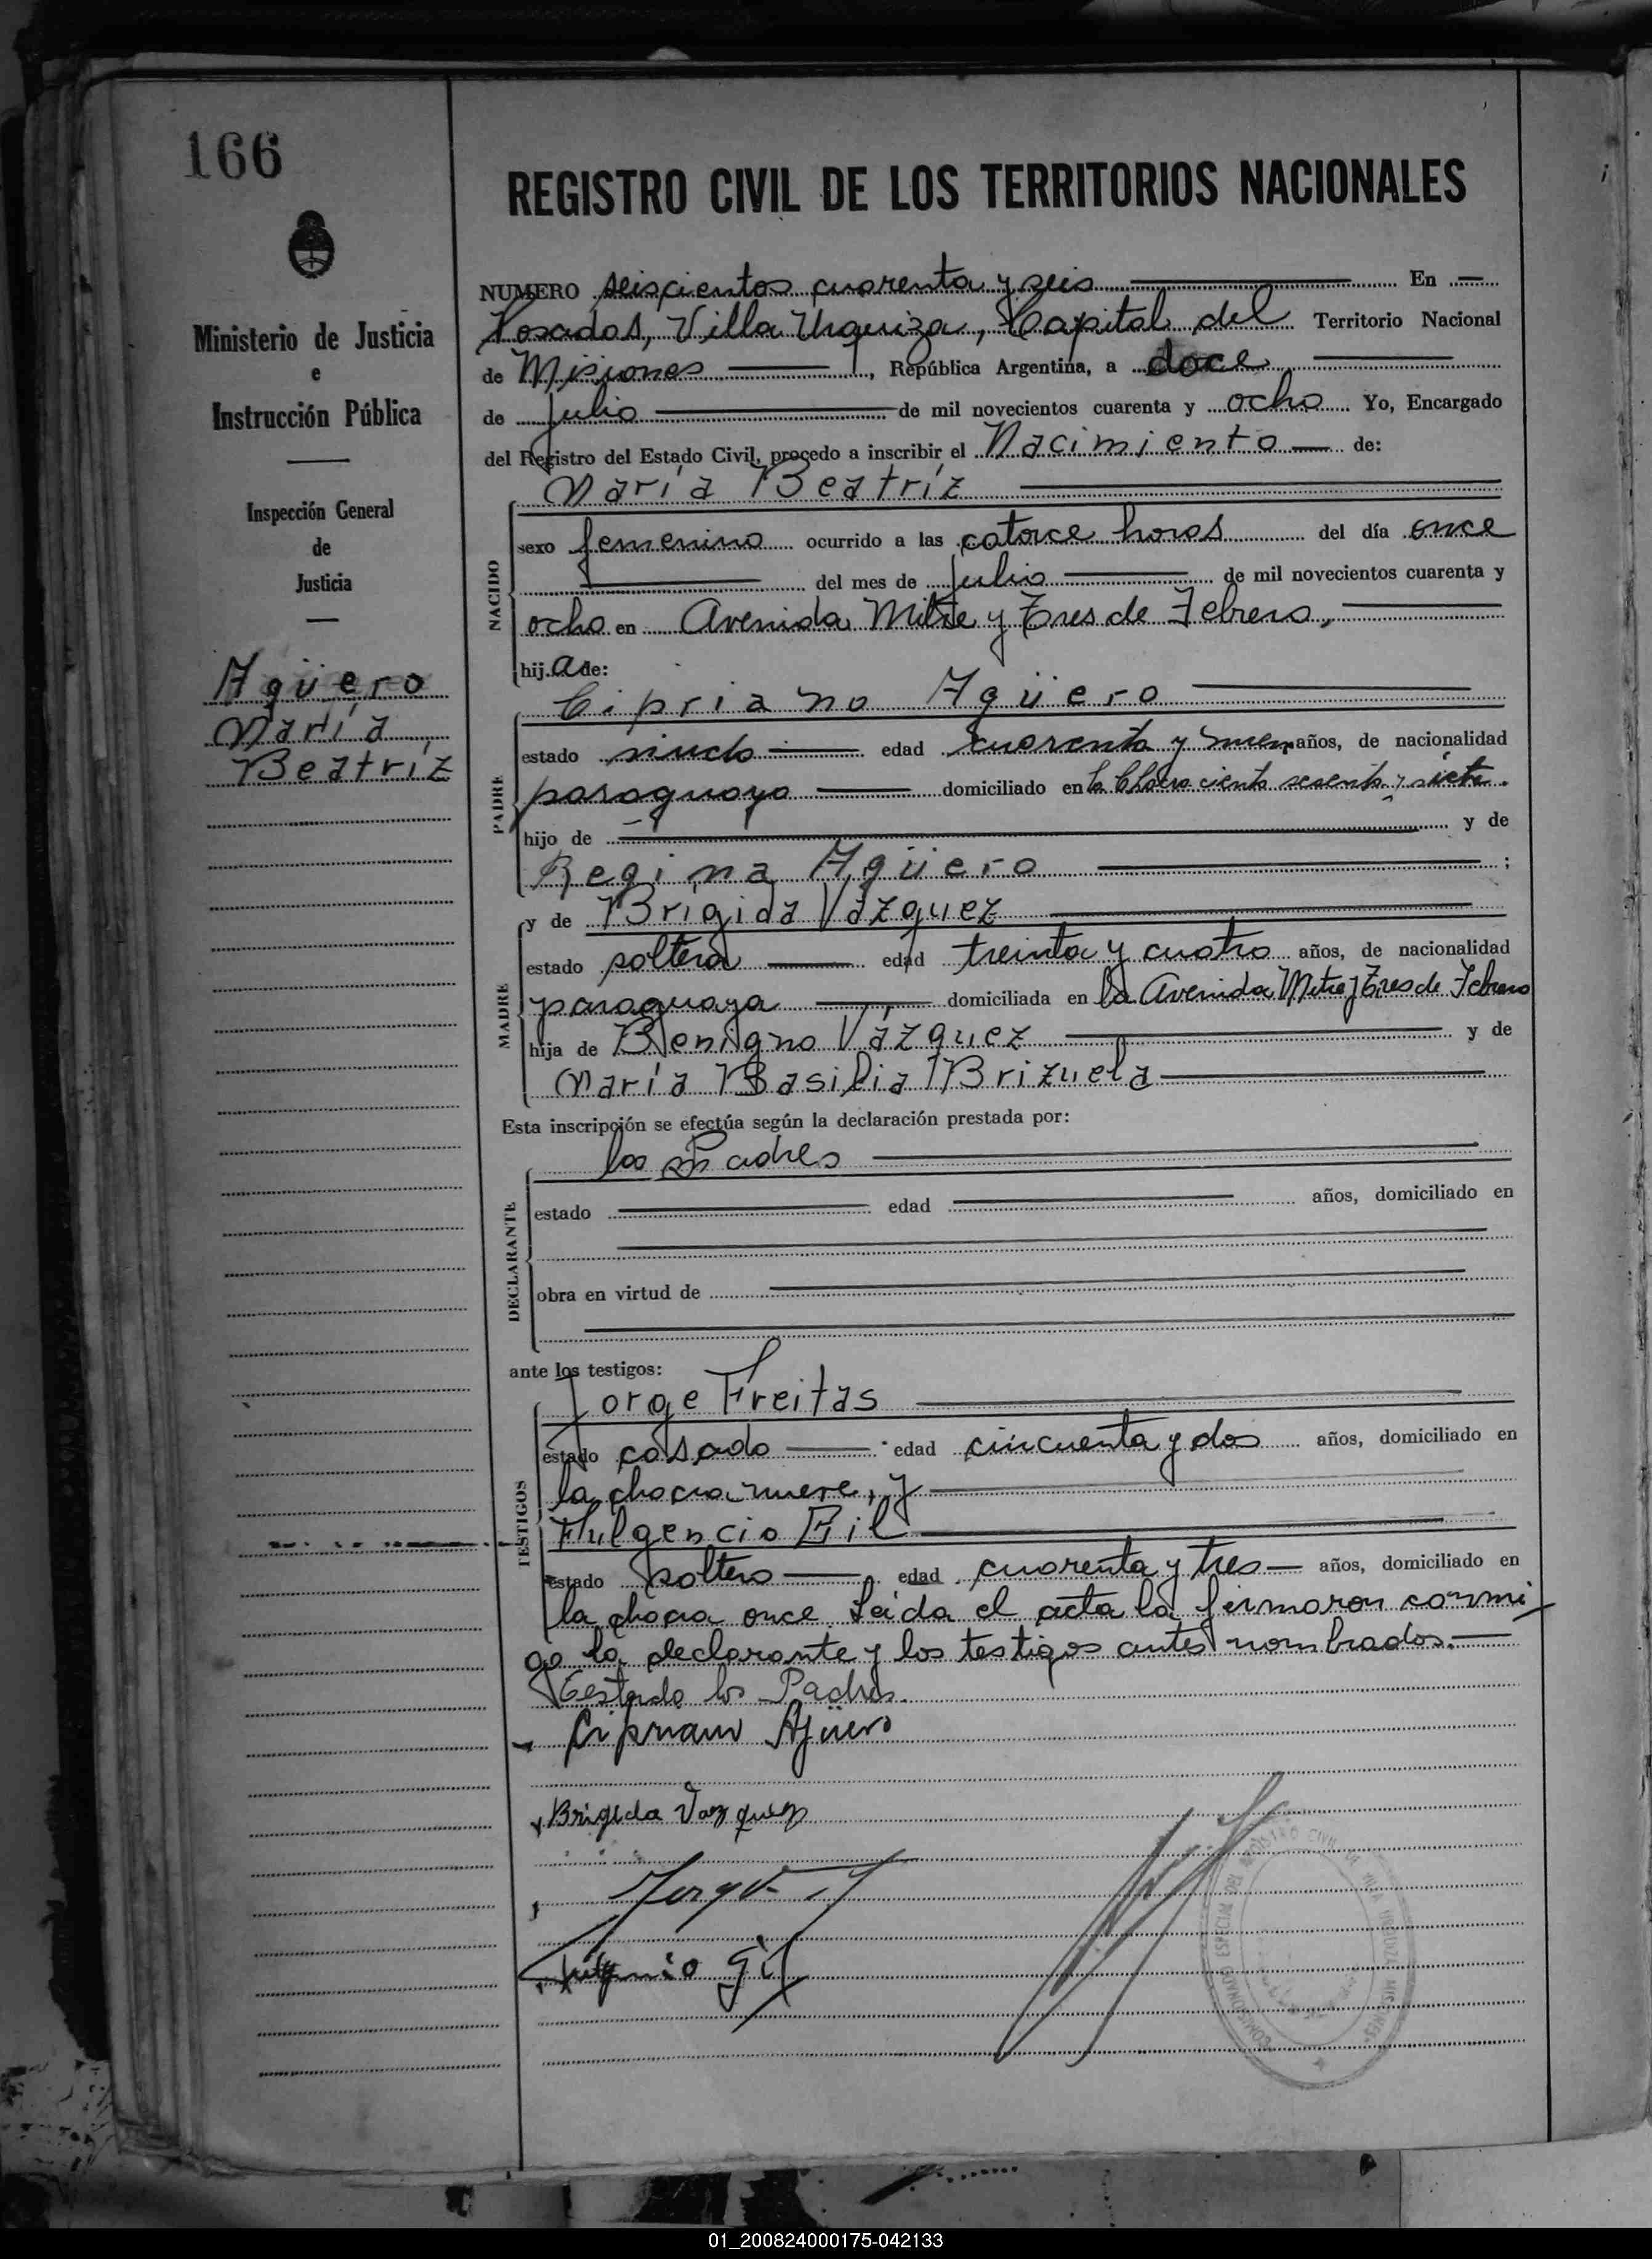 166
REGISTRO CIVIL DE LOS TERRITORIOS NACIONALES
Ministerio de Justicia
e
Instrucción Pública
Inspección General
de
Justicia
Agüero
María
Beatríz
NUMERO seiscientos cuarenta y seis En
Posadas, Villa Urquiza, Capital del Territorio Nacional
de Misiones, República Argentina, a doce
de julio de mil novecientos cuarenta y ocho Yo, Encargado
del Registro del Estado Civil, procedo a inscribir el Nacimiento de:
María Beatríz
NACIDO
sexo femenino ocurrido a las catorce horas del día once
del mes de julio de mil novecientos cuarenta y
ocho en Avenida Mitre y Tres de Febrero,
hij.a de:
Cipriano Agüero
PADRE
estado viudo edad cuarenta y nueve años, de nacionalidad
paraguaya domiciliado en la Chacra ciento sesenta y siete.
hijo de y de
Regina Agüero ;
y de Brígida Vázquez
MADRE
estado soltera edad treinta y cuatro años, de nacionalidad
paraguaya domiciliada en la Avenida Mitre y Tres de Febrero
hija de Benigno Vázquez y de
María Basilia Brizuela
Esta inscripción se efectúa según la declaración prestada por:
los Padres
DECLARANTE
estado edad años, domiciliado en
obra en virtud de
ante los testigos:
Jorge Freitas
TESTIGOS
estado casado edad cincuenta y dos años, domiciliado en
la chacra nueve, y
Fulgencio Gil
estado soltero edad cuarenta y tres años, domiciliado en
la chacra once Leída el acta la firmaron conmi
go la declarante y los testigos antes nombrados.
Testado los Padres.
Cipriano Agüero
Brigida Vazquez
Gil
REGISTRO CIVIL
01_200824000175-042133